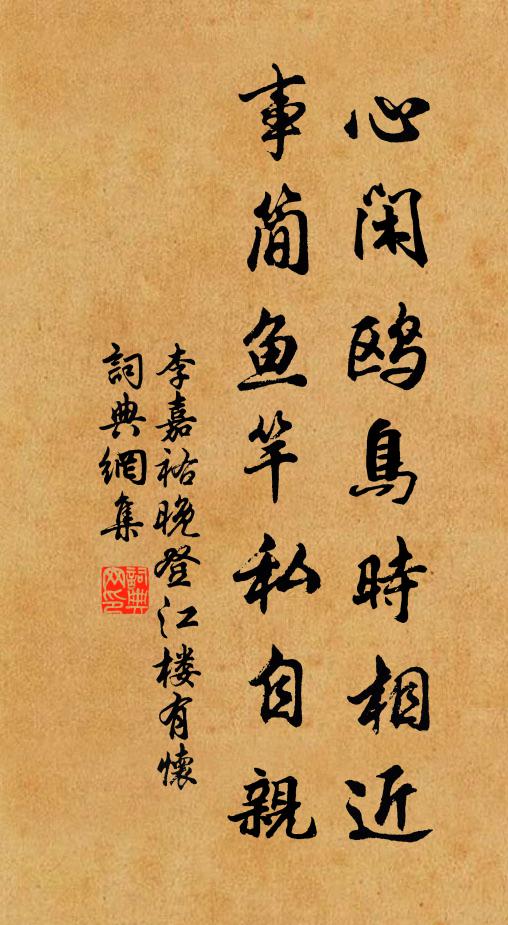 心闲鸥鳥時相近
事简鱼竿私自親
李嘉祐晚登江楼有懷
詞典網集
詞典网印